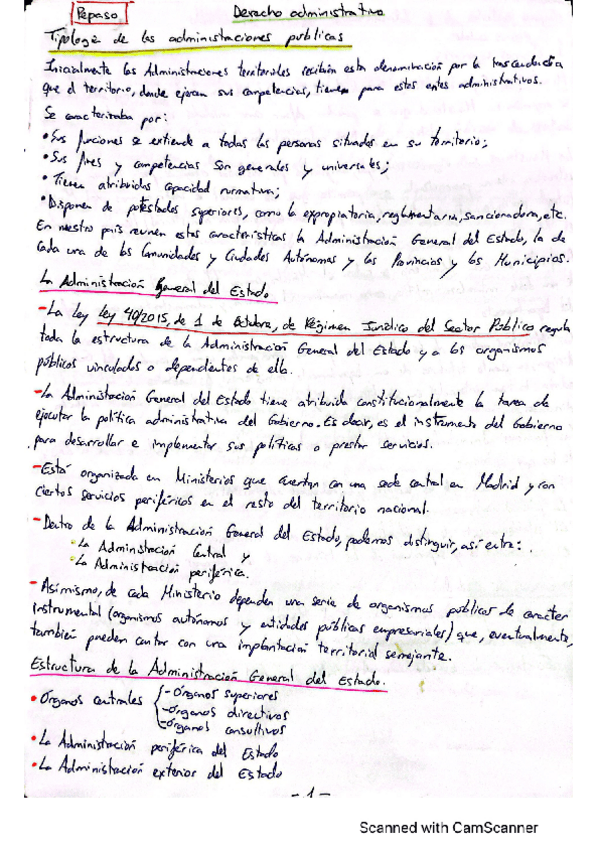 Repaso Derecho administrativo
Tipología de las administraciones públicas
Inicialmente las Administraciones territoriales recibían esta denominación por la trascendencia
que el territorio, donde ejercen sus competencias, tienen para estos entes administrativos.
Se caracterizaba por:
• Sus funciones se extiende a todas las personas situadas en su territorio;
• Sus fines y competencias son generales y universales;
• Tienen atribuidas capacidad normativa;
• Disponen de potestades superiores, como la expropiatoria, reglamentaria, sancionadora, etc.
En nuestro país reunen estas características la Administración General del Estado, la de
cada una de las Comunidades y Ciudades Autónomas y las Provincias y los Municipios.
La Administración General del Estado
- La Ley Ley 40/2015, de 1 de Octubre, de Régimen Jurídico del Sector Público regula
toda la estructura de la Administración General del Estado y a los organismos
públicos vinculados o dependientes de ella.
- La Administración General del Estado tiene atribuida constitucionalmente la tarea de
ejecutar la política administrativa del Gobierno. Es decir, es el instrumento del Gobierno
para desarrollar e implementar sus políticas o prestar servicios.
- Está organizada en Ministerios que cuentan con una sede central en Madrid y con
ciertos servicios periféricos en el resto del territorio nacional.
- Dentro de la Administración General del Estado, podemos distinguir, así entre:
• La Administración Central y
• La Administración periférica.
- Asimismo, de cada Ministerio dependen una serie de organismos públicos de carácter
instrumental (organismos autónomos y entidades públicas empresariales) que, eventualmente,
también pueden contar con una implantación territorial semejante.
Estructura de la Administración General del Estado.
• Órganos centrales { - Órganos superiores
- Órganos directivos
- Órganos consultivos
• La Administración periférica del Estado
• La Administración exterior del Estado
- 1 -
Scanned with CamScanner